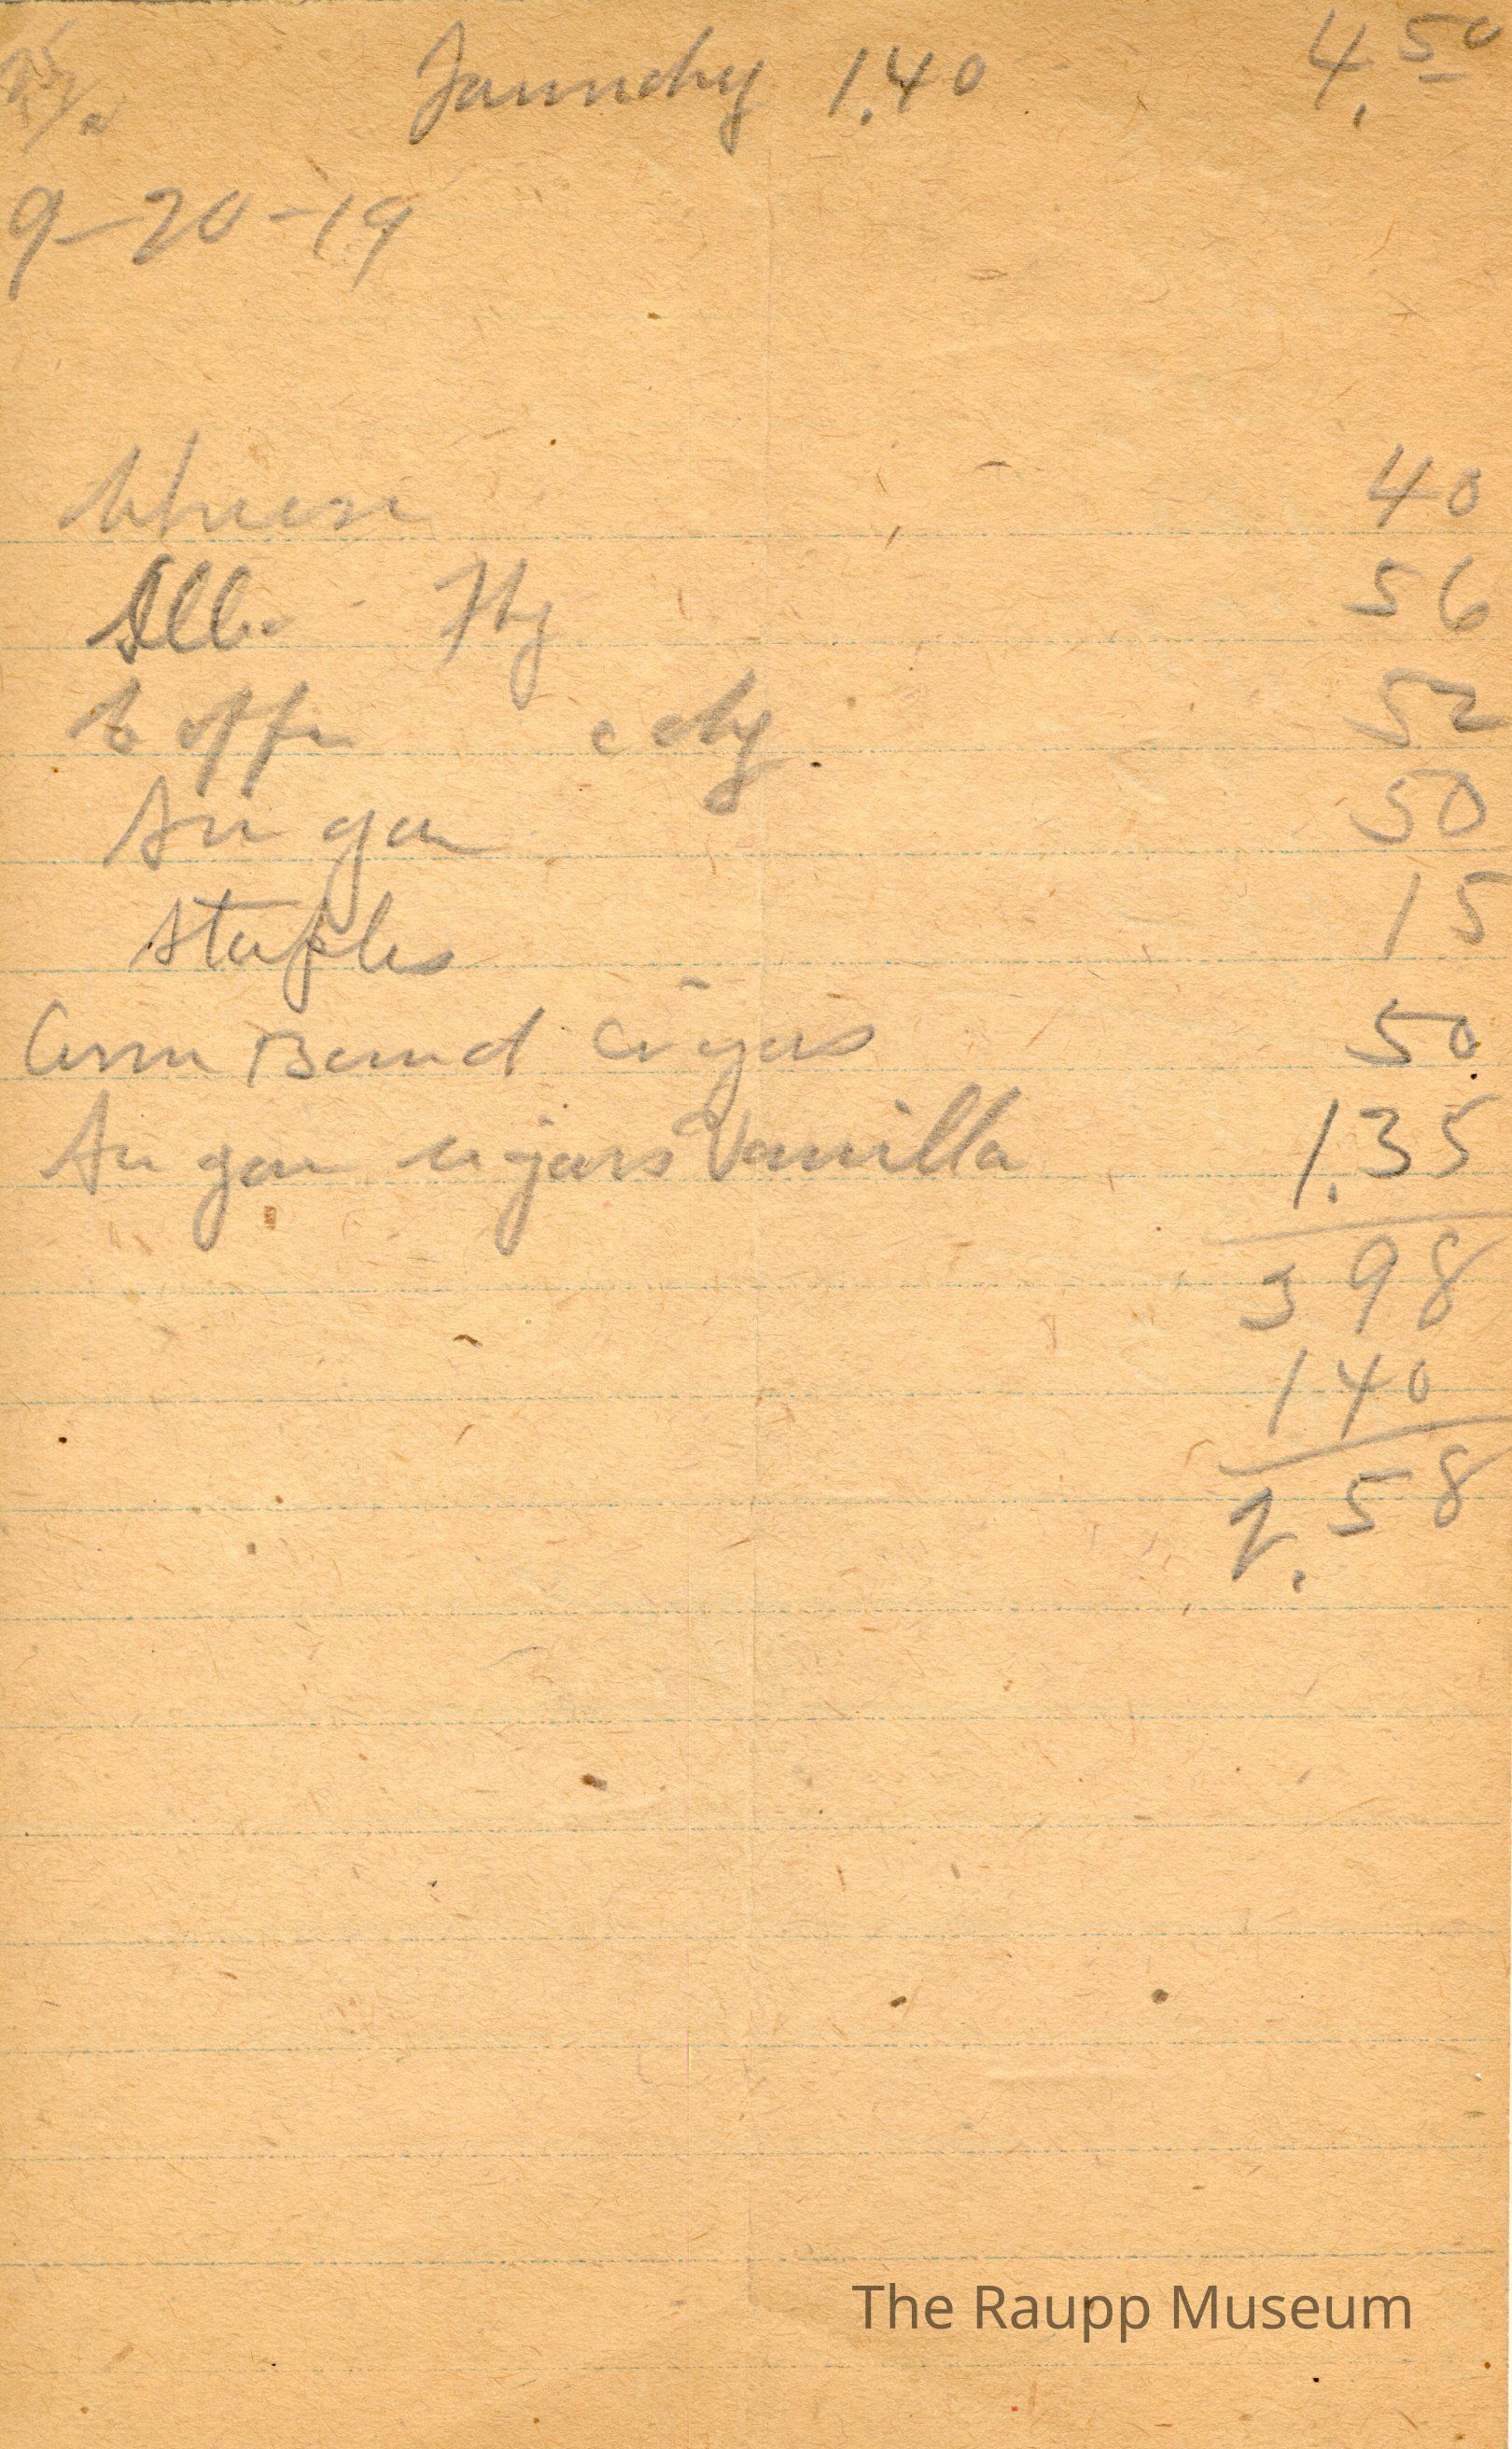 Laundry 1.40 4.50
9-20-19
Cheese 40
56
Coffe cdy 52
Sugar 50
Staples 15
Arm Band Cigars 50
Sugar cigars Vanilla 1.35
3 98
1 40
2.58
The Raupp Museum